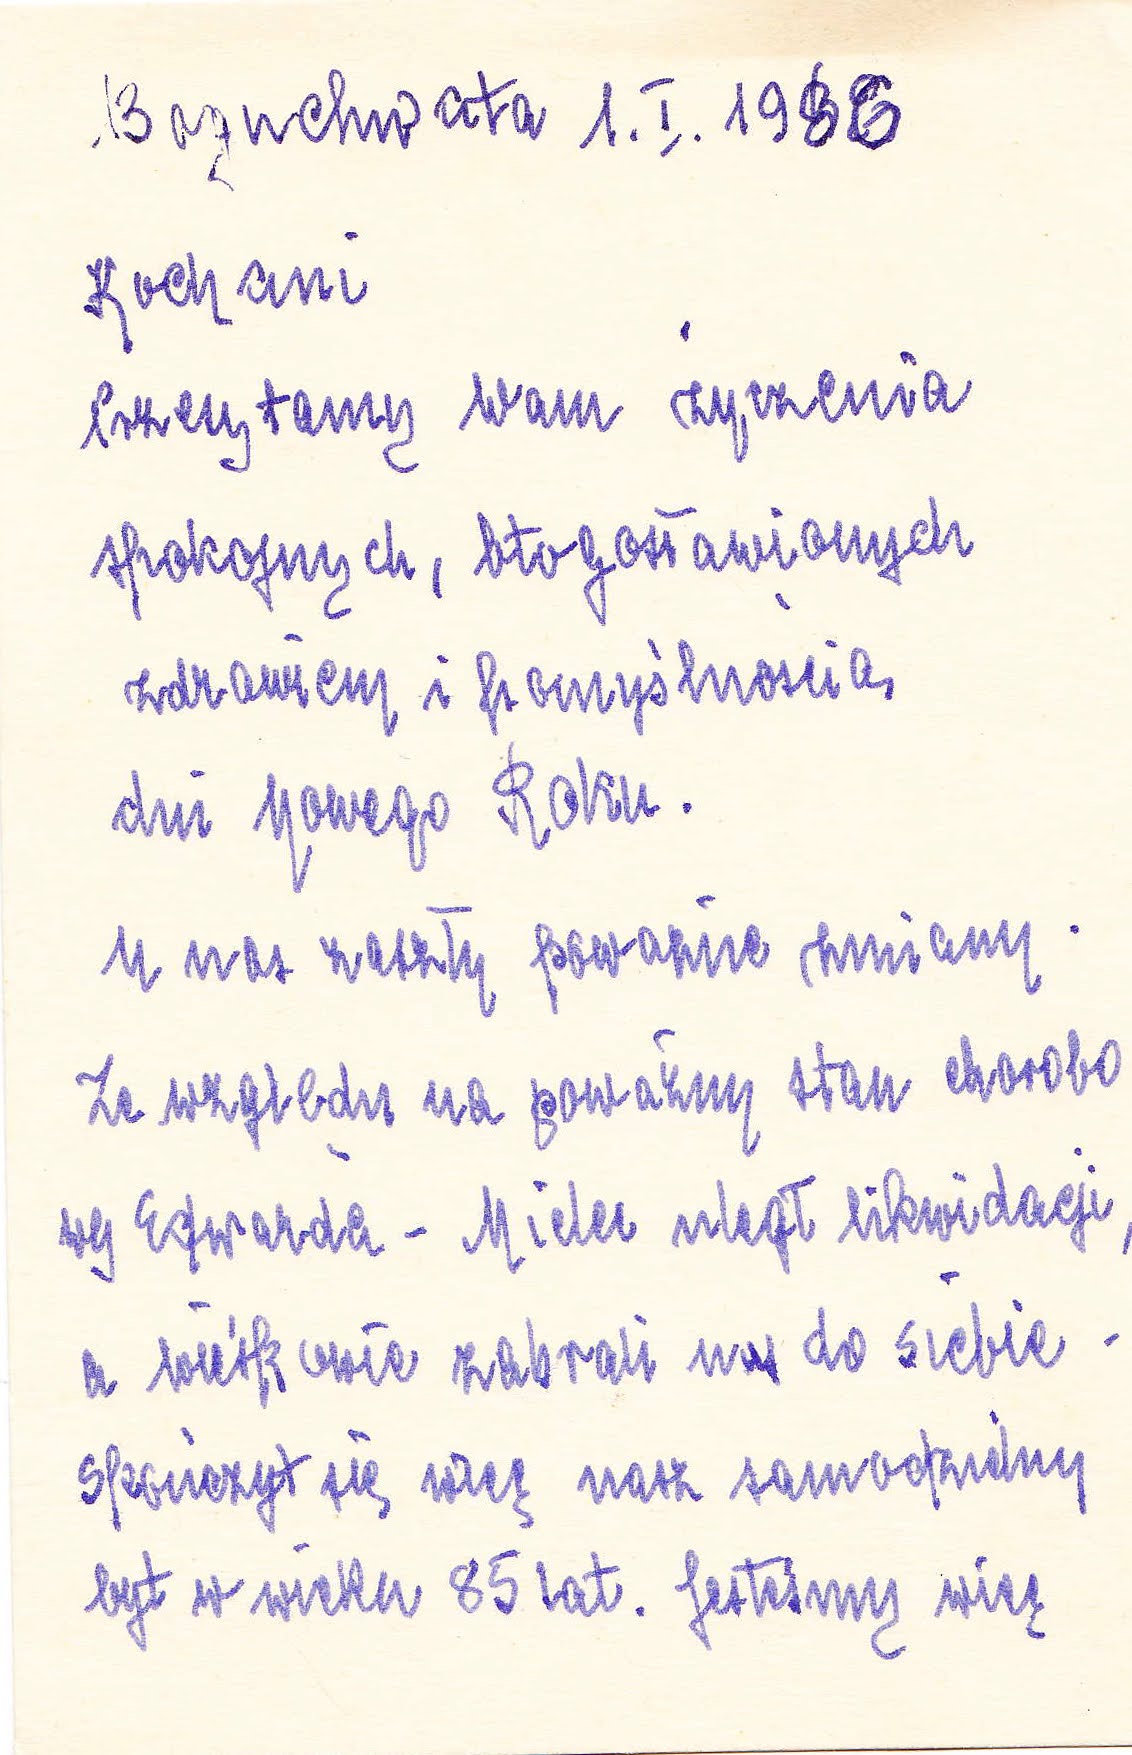 Boguchwała 1.I.1986
Kochani
Przesyłamy Wam życzenia
spokojnych, błogosławionych
zdrowiem i pomyślnością
dni Nowego Roku.
U nas zaszły poważne zmiany.
Ze względu na poważny stan chorobo
wy Edwarda - Mielec uległ likwidacji,
a zabrali nas do siebie -
skończył się więc nasz samodzielny
byt w wieku 85 lat. Jesteśmy więc